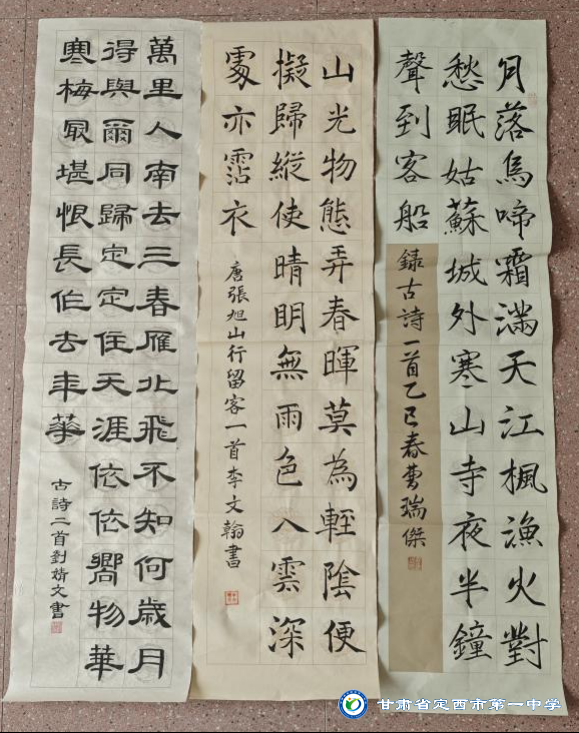 月落烏啼霜滿天江楓漁火對
愁眠姑蘇城外寒山寺夜半鐘
聲到客船
錄古詩一首乙巳春曹瑞傑
山光物態弄春暉莫為輕陰便
擬歸縱使晴明無雨色入雲深
處亦霑衣
唐張旭山行留客一首李文翰書
萬里人南去三春雁北飛不知何歲月
得與爾同歸定定住天涯依依嚮物華
寒梅冣堪恨長作去年華
古詩二首劉婧文書
甘肃省定西市第一中学